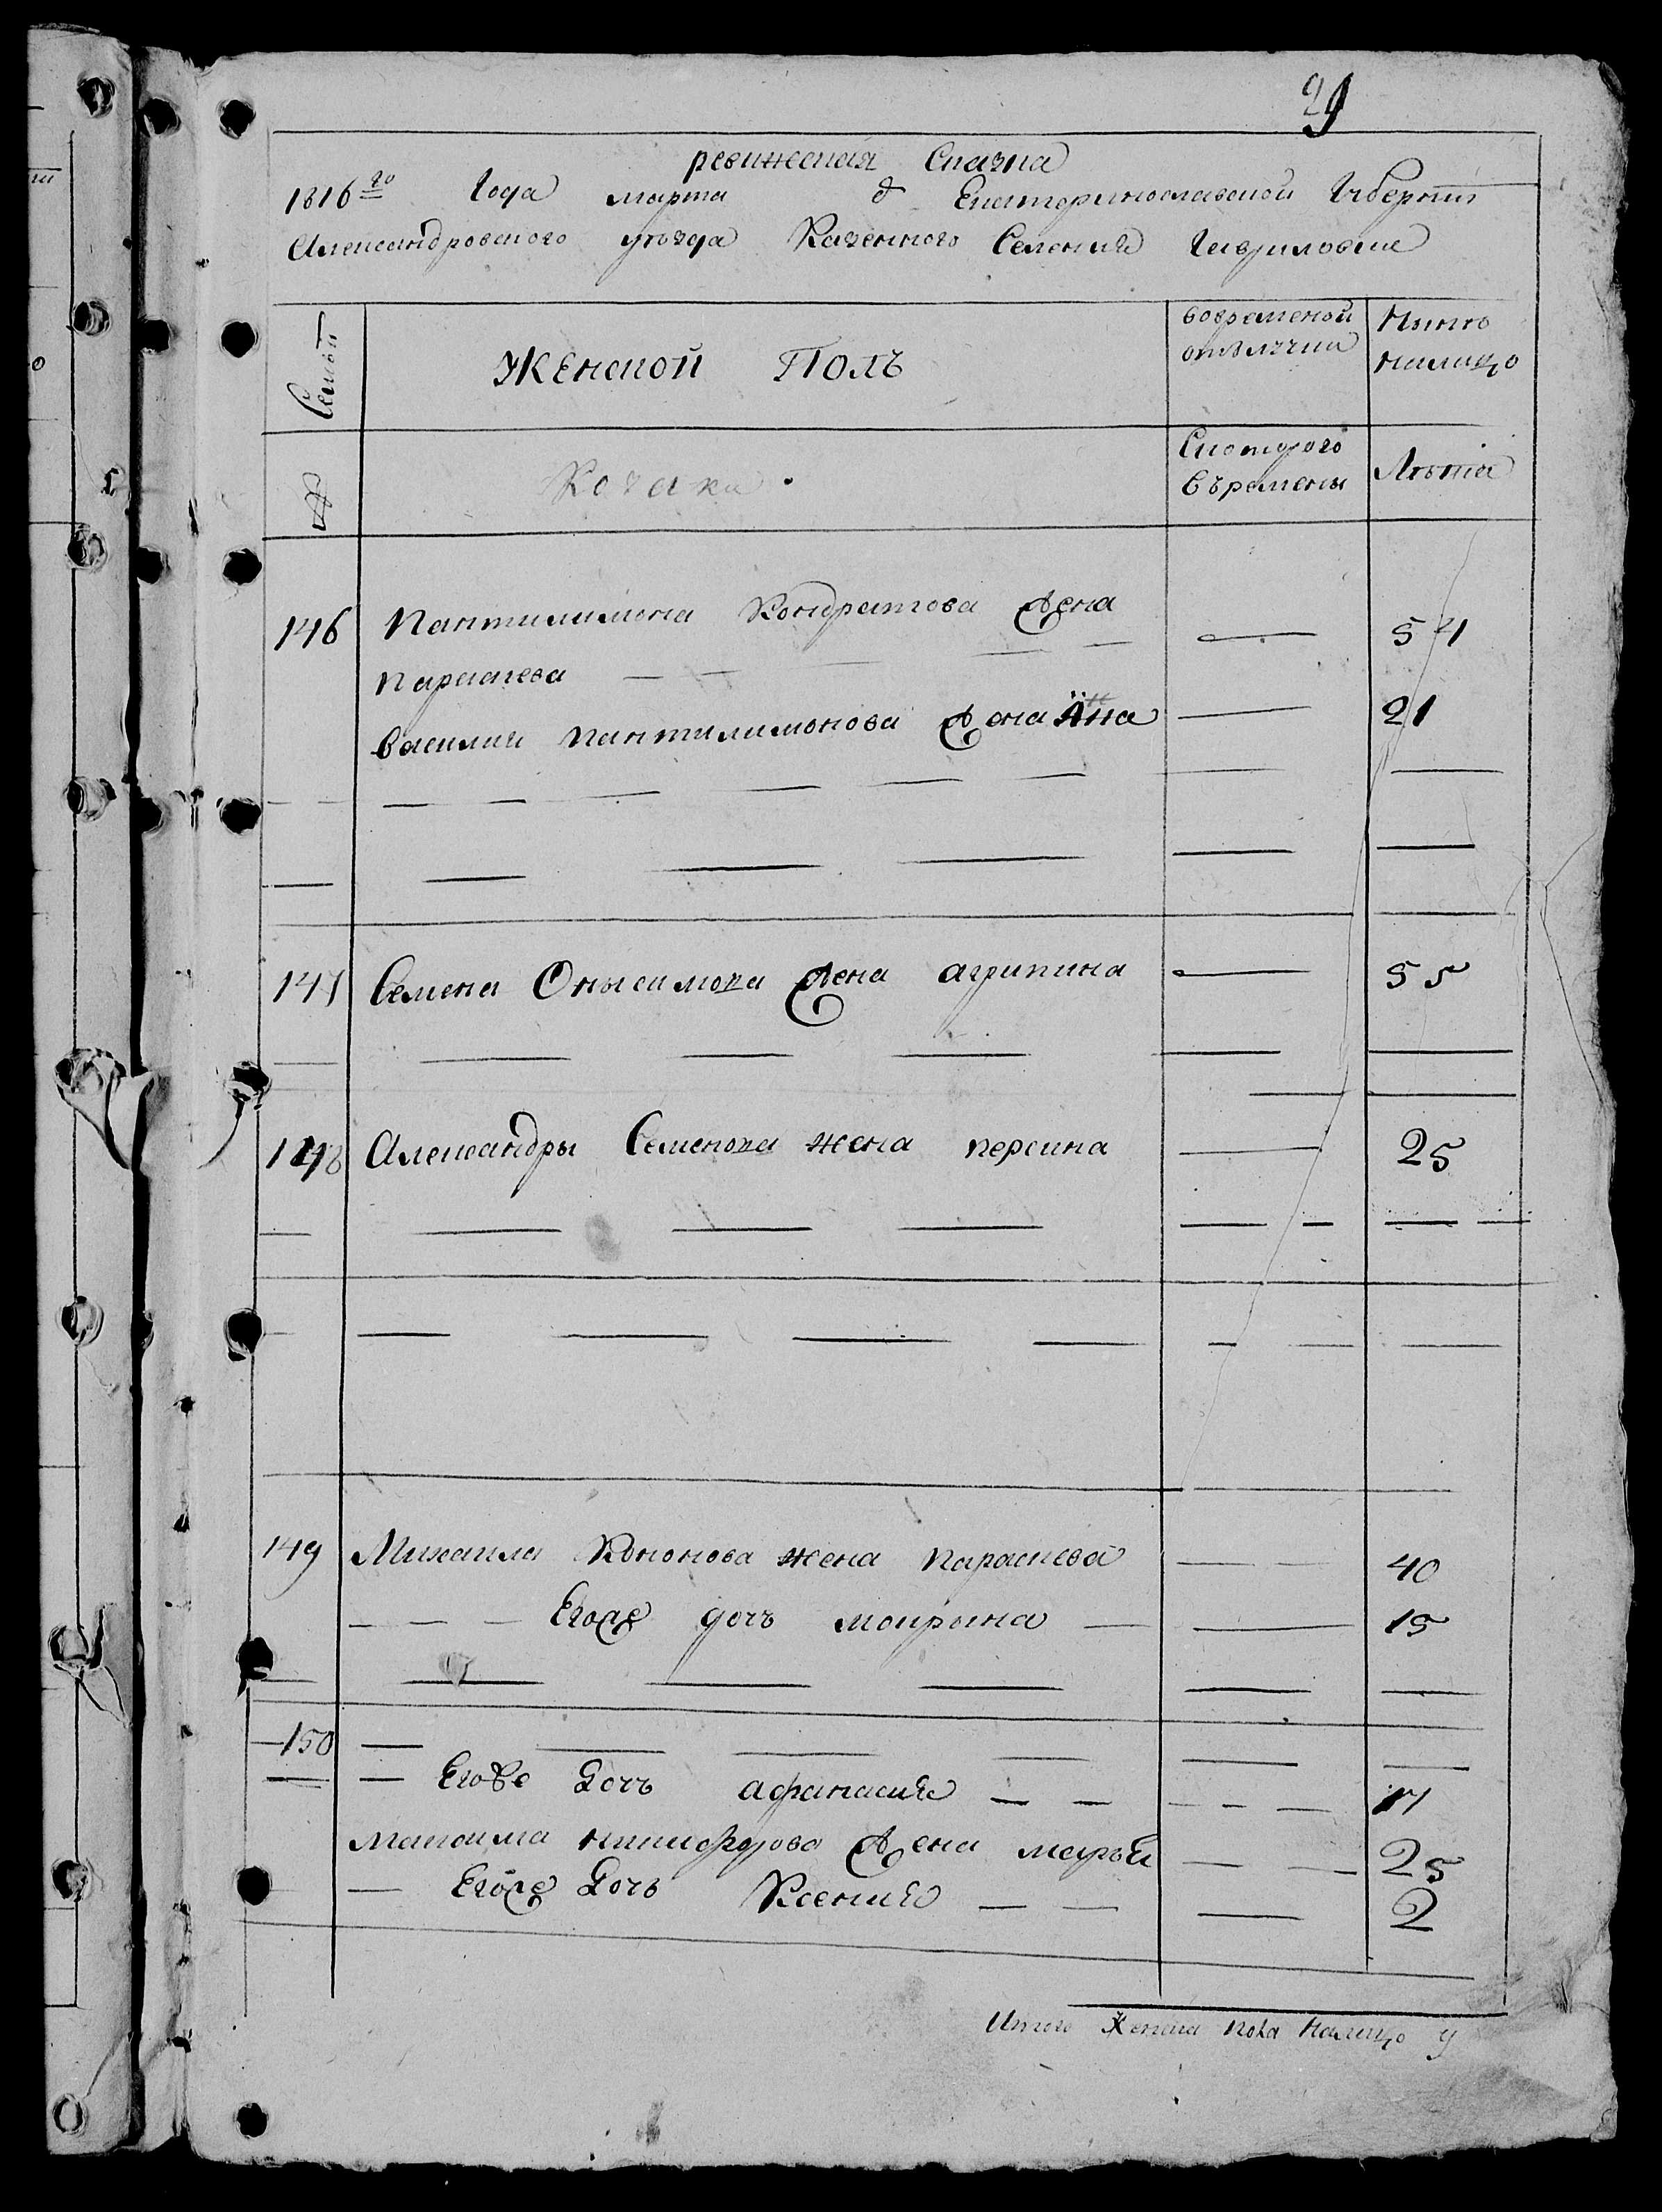 29
ревижская Сказка
1816го Года марта д Екатеринославской Губернии
Александровского уезда Казенного Селения Гавриловки
Семьи
Женской Полъ
вовременой отълучки
Нынѣ налицо
№
Козаки.
Скоторого въремены
Лѣта
146 Пантилимона Кондратова жена 54
Параскева — —
Василия Пантилимонова жена Анна 21
147 Семена Онысимова жена агрипина 55
148 Александры Семенова жена персина 25
149 Михаила Кононова жена Параскева 40
Егоже дочъ моирына 15
150
Егоже Дочъ афанасия 17
Максима никифорова жена маръя 25
Егоже Дочъ Ксения 2
Итого Женска пола налицо 9